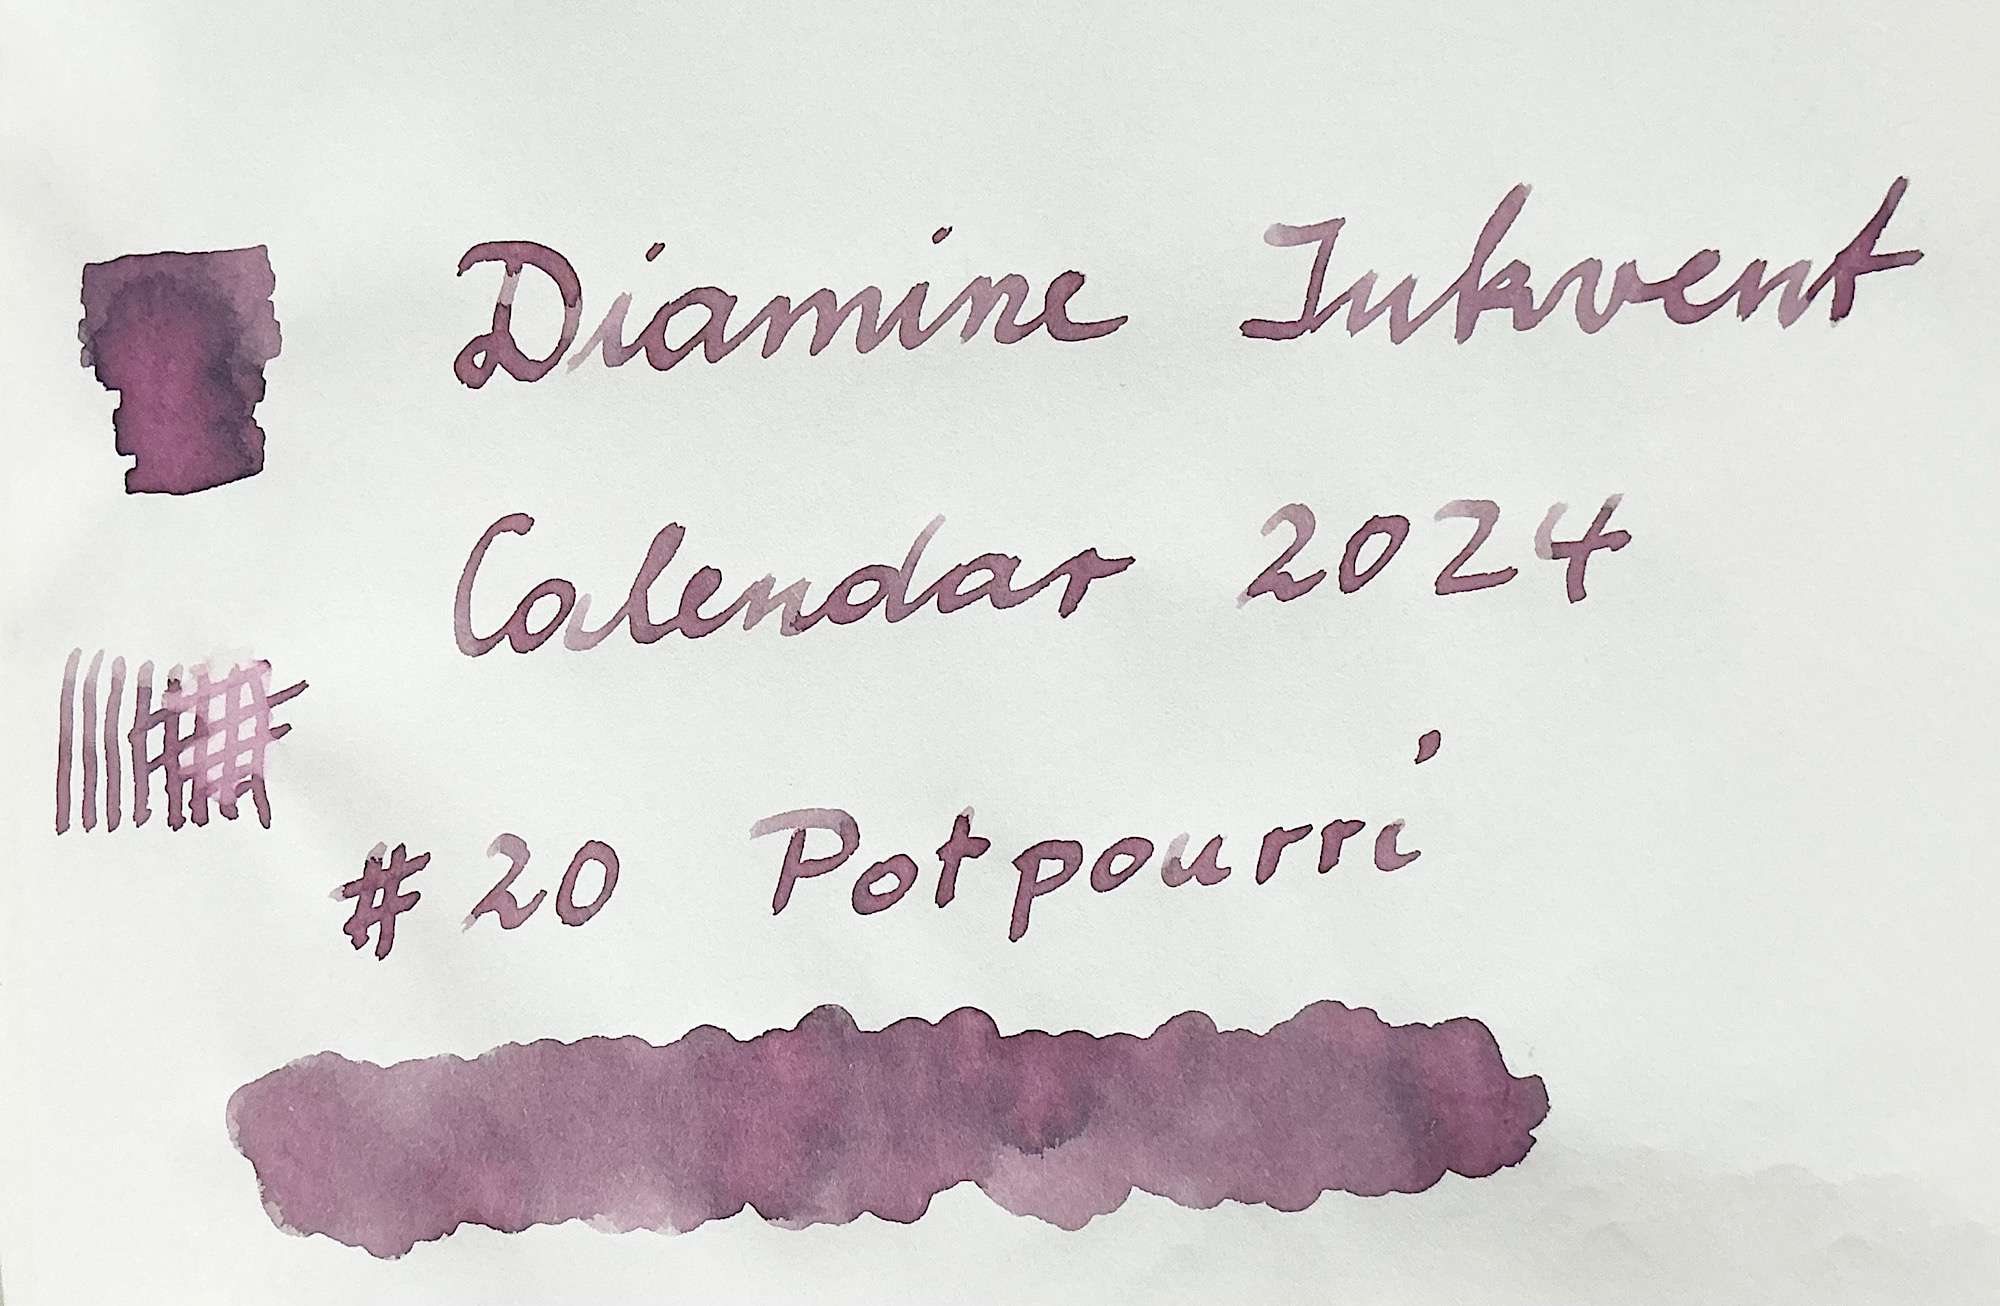 Diamine Inkvent
Calendar 2024
# 20 Potpourri